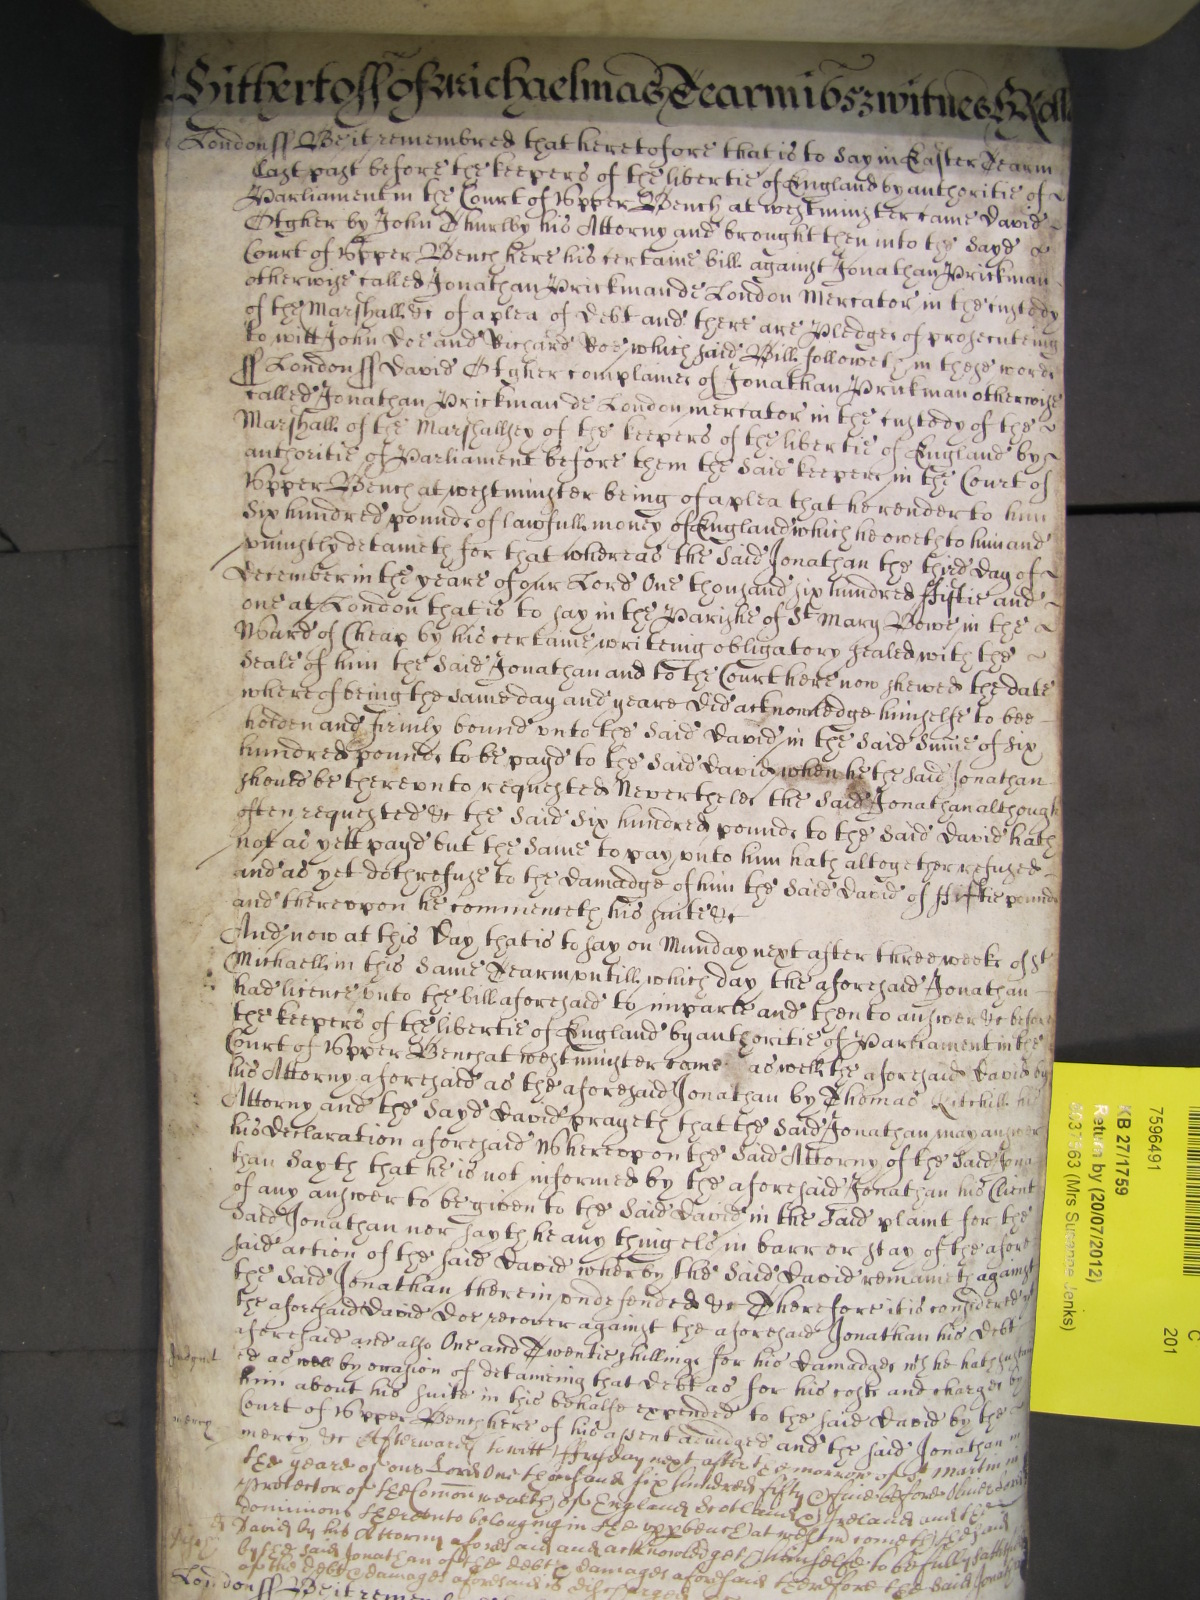 Hitherto ss of Michaelmas Tearm 1652 witnes H Rolle
London ss Be it remembred that heretofore that is to say in Easter Tearm
last past before the keepers of the libertie of England by authoritie of
Parliament in the Court of Upper Bench at westminster came David
Otgher by John Thurlby his Attorny and brought then into the Sayd
Court of Upper Bench here his certaine bill against Jonathan Prickman
otherwise called Jonathan Prickman de London Mercator in the custody
of the Marshall &c of a plea of Debt and there are Pledges of prosecuteing
to witt John Doe and Richard Roe which said Bill followeth in these words
ss London ss David Otgher complaines of Jonathan Prickman otherwise
called Jonathan Prickman de London mercator in the custody of the
Marshall of the Marshallsey of the keepers of the libertie of England by
authoritie of Parliament before them the Said keepers in the Court of
Upper Bench at westminster being of a plea that he render to him
Six hundred pounds of lawfull money of England which he oweth to him and
uniustly detaineth for that whereas the Said Jonathan the third Day of
December in the yeare of our Lord One thousand six hundred ffiftie and
one at London that is to say in the Parishe of St Mary Bowe in the
Ward of Cheap by his certaine writeing obligatory sealed with the
Seale of him the Said Jonathan and to the Court here now shewed the date
whereof being the same day and yeare Did acknowledge himselfe to bee
holden and firmly bound unto the Said David in the Said Summe of six
hundred pounds to be payd to the Said David when he the Said Jonathan
should be thereunto requested Neverthelesse the Said Jonathan although
often requested &c the Said Six hundred pounds to the Said David hath
not as yett payd but the Same to pay unto him hath altogether refused
and as yet doth refuse to the Damadge of him the Said David of ffiftie pounds
and thereupon he commenceth his suite &c
And now at this Day that is to say on Munday next after three weeks of St
Michaell in this Same Tearm untill which day the aforesaid Jonathan
had licence unto the bill aforesaid to imparle and then to answer &c before
the keepers of the libertie of England by authoritie of Parliament in the
Court of Upper Bench at westminster come as well the aforesaid David by
his Attorny aforesaid as the aforesaid Jonathan by Thomas his
Attorny and the Sayd David prayeth that the Said Jonathan may answer
his Declaration aforesaid Whereopon the Said Attorny of the Said Jona
than Sayth that he is not informed by the aforesaid Jonathan his Client
of any answer to be given to the Said David in the Said plaint for the
Said Jonathan nor sayth he any thing els in barr or stay of the afore
said action of the said David wherby the Said David remaineth against
the Said Jonathan therein undefended &c Therefore it is considered yt
the aforesaid David Doe recover against the aforesaid Jonathan his Debt
aforesaid and also One and Twentie shillings for his Damadges wch he hath sustain
Judgmt ed as well by ocasion of detaineing that Debt as for his costs and charges by
him about his suite in this behalfe expended to the said David by the
mercy Court of Upper Bench here of his assent adiudged and the said Jonathan in
mercy &c Afterwards to witt ffryday next after the morrow of St Martin in
the yeare of our Lord One thousand six hundred fifty & five before Oliver Lord
Protector of the Comonwealth of England Scotland & Ireland and the
dominions thereunto belonging in the upp bench at westm cometh the said
David by his Attorny aforesaid and acknowledgeth himselfe to be fully satisfied
by the said Jonathan of the debt & damages aforesaid therefore the said Jonathan
of the debt & damages aforesaid is discharged
London ss Be it remem
KB 27/1759
Return by (20/07/2012)
(Mrs Susanne Jenks)
7596491
C
201